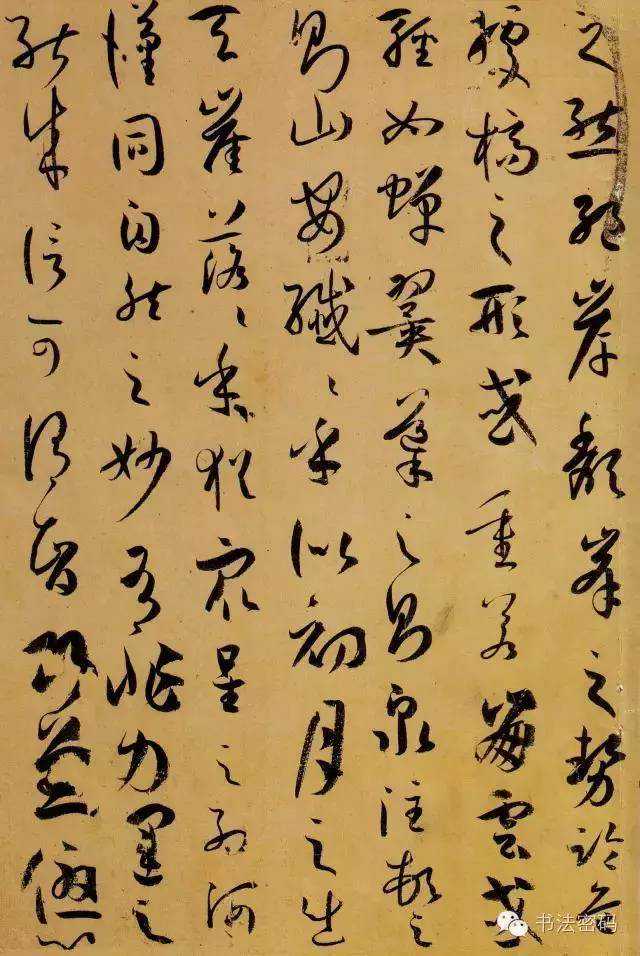 之態絕岸頹峯之勢臨危
據槁之形或重若崩雲或
輕如蟬翼導之則泉注頓之
則山安纖〻乎似初月之出
天崖落〻乎猶衆星之列河
漢同自然之妙有非力運之
能成信可謂智巧兼優心
书法密码